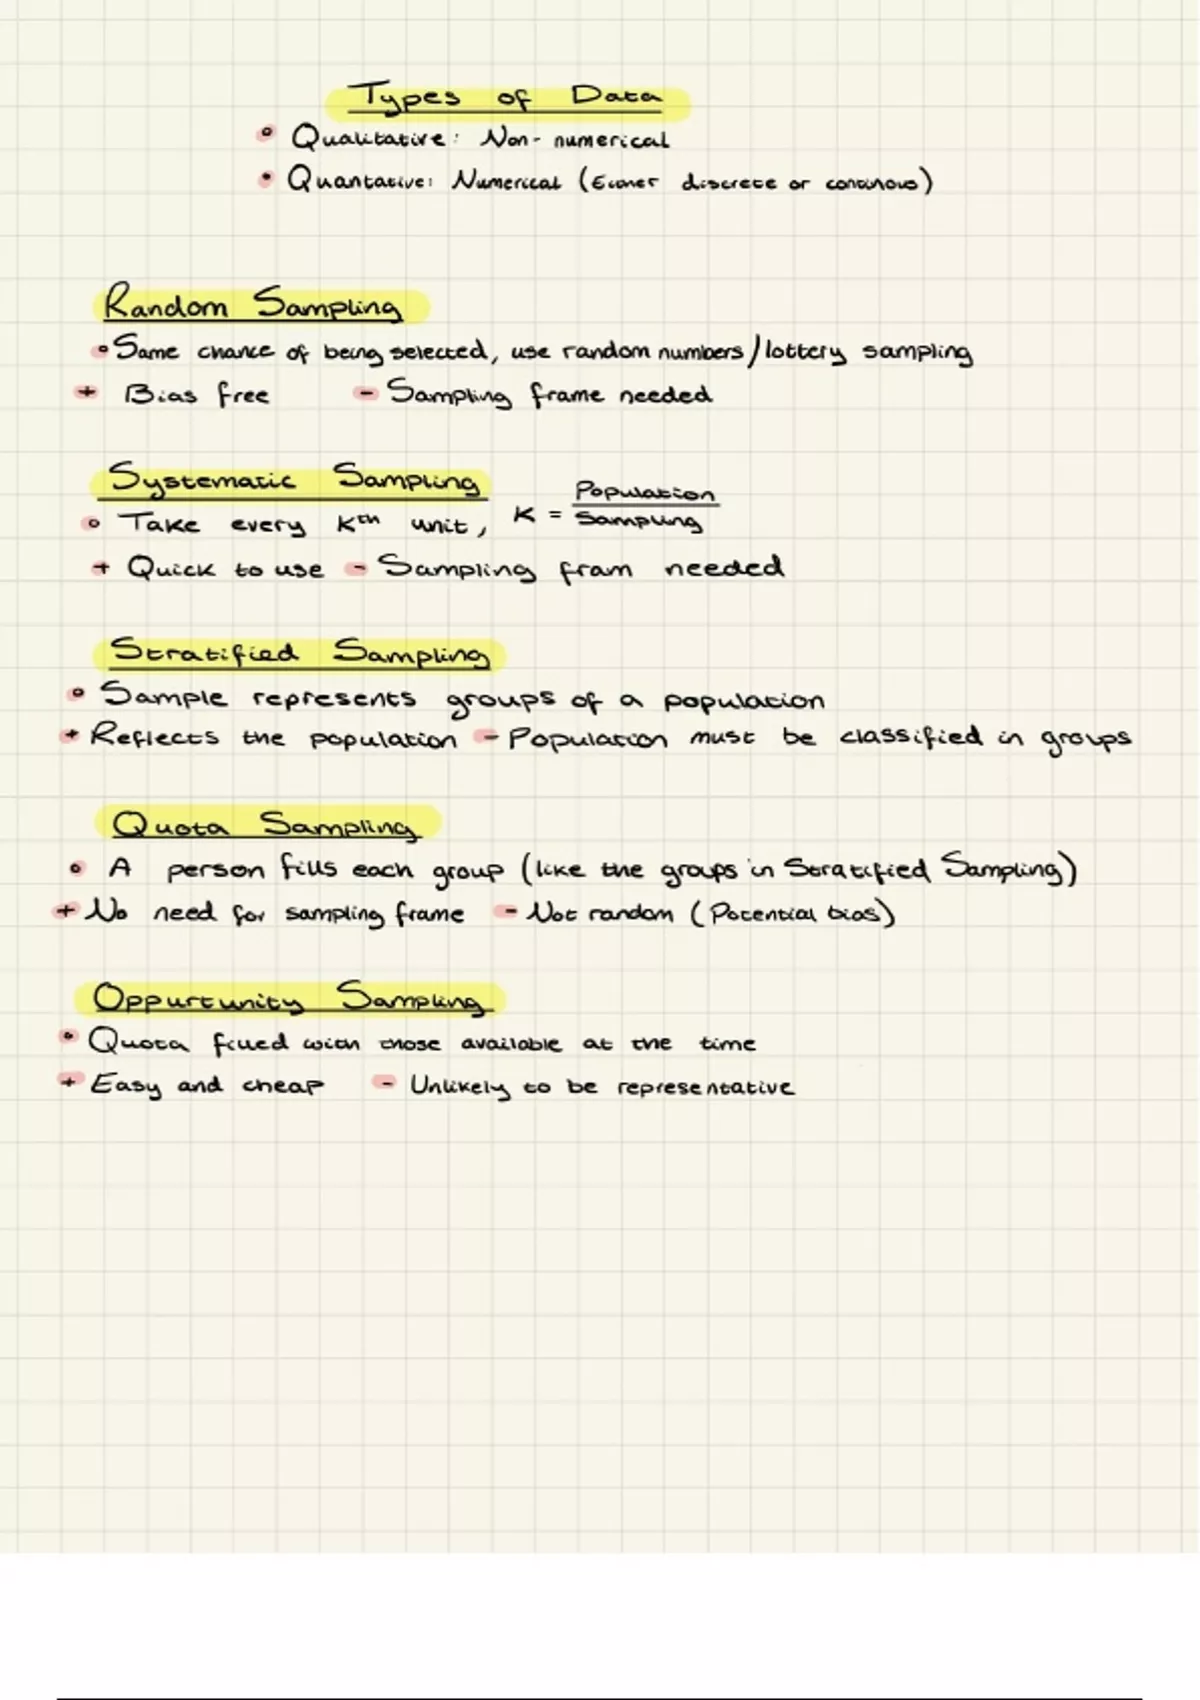 Types of Data
• Qualitative: Non-numerical
• Quantative: Numerical (Either discrete or continous)
Random Sampling
• Same chance of being selected, use random numbers/lottery sampling
+ Bias free - Sampling frame needed
Systematic Sampling
• Take every Kth unit, K = Population / Sampling
+ Quick to use - Sampling fram needed
Stratified Sampling
• Sample represents groups of a population
+ Reflects the population - Population must be classified in groups
Quota Sampling
• A person fills each group (like the groups in Stratified Sampling)
+ No need for sampling frame - Not random (Potential bias)
Oppurtunity Sampling
• Quota filled with those available at the time
+ Easy and cheap - Unlikely to be representative